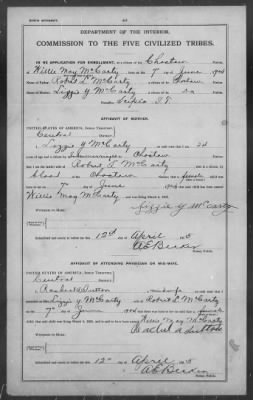 BIRTH AFFIDAVIT.
DEPARTMENT OF THE INTERIOR.
COMMISSION TO THE FIVE CIVILIZED TRIBES.
IN RE APPLICATION FOR ENROLLMENT, as a citizen of the Choctaw Nation,
of Willie May McCarty, born on the 7 day of June, 190
Name of Father: Robert L McCarty a citizen of the Choctaw Nation.
Name of Mother: Lizzie Y McCarty a citizen of the Nation.
Scipio I.T.
AFFIDAVIT OF MOTHER.
UNITED STATES OF AMERICA, Indian Territory,
Central District.
I, Lizzie Y McCarty, on oath state that I am 24
years of age and a citizen by Intermarriage, of the Choctaw Nation;
that I am the lawful wife of Robert L McCarty, who is a citizen, by
blood of the Choctaw Nation; that a female child was born to me
on 7 day of June, 190 that said child has been named
Willie May McCarty, and was living March 4, 1905.
Lizzie Y McCarty
Witnesses to Mark:
Subscribed and sworn to before me this 12th day of April, 1905
Notary Public.
AFFIDAVIT OF ATTENDING PHYSICIAN OR MID-WIFE.
UNITED STATES OF AMERICA, Indian Territory,
Central District.
I, Rachel A Sutton, a midwife, on oath state that I
attended on Mrs. Lizzie Y McCarty, wife of Robert L McCarty
on the 7 day of June, 190 that there was born to her on said date a female
child; that said child was living March 4, 1905, and is said to have been named Willie May McCarty
Rachel A Sutton
Witnesses to Mark:
Subscribed and sworn to before me this 12th day of April, 1905
Notary Public.